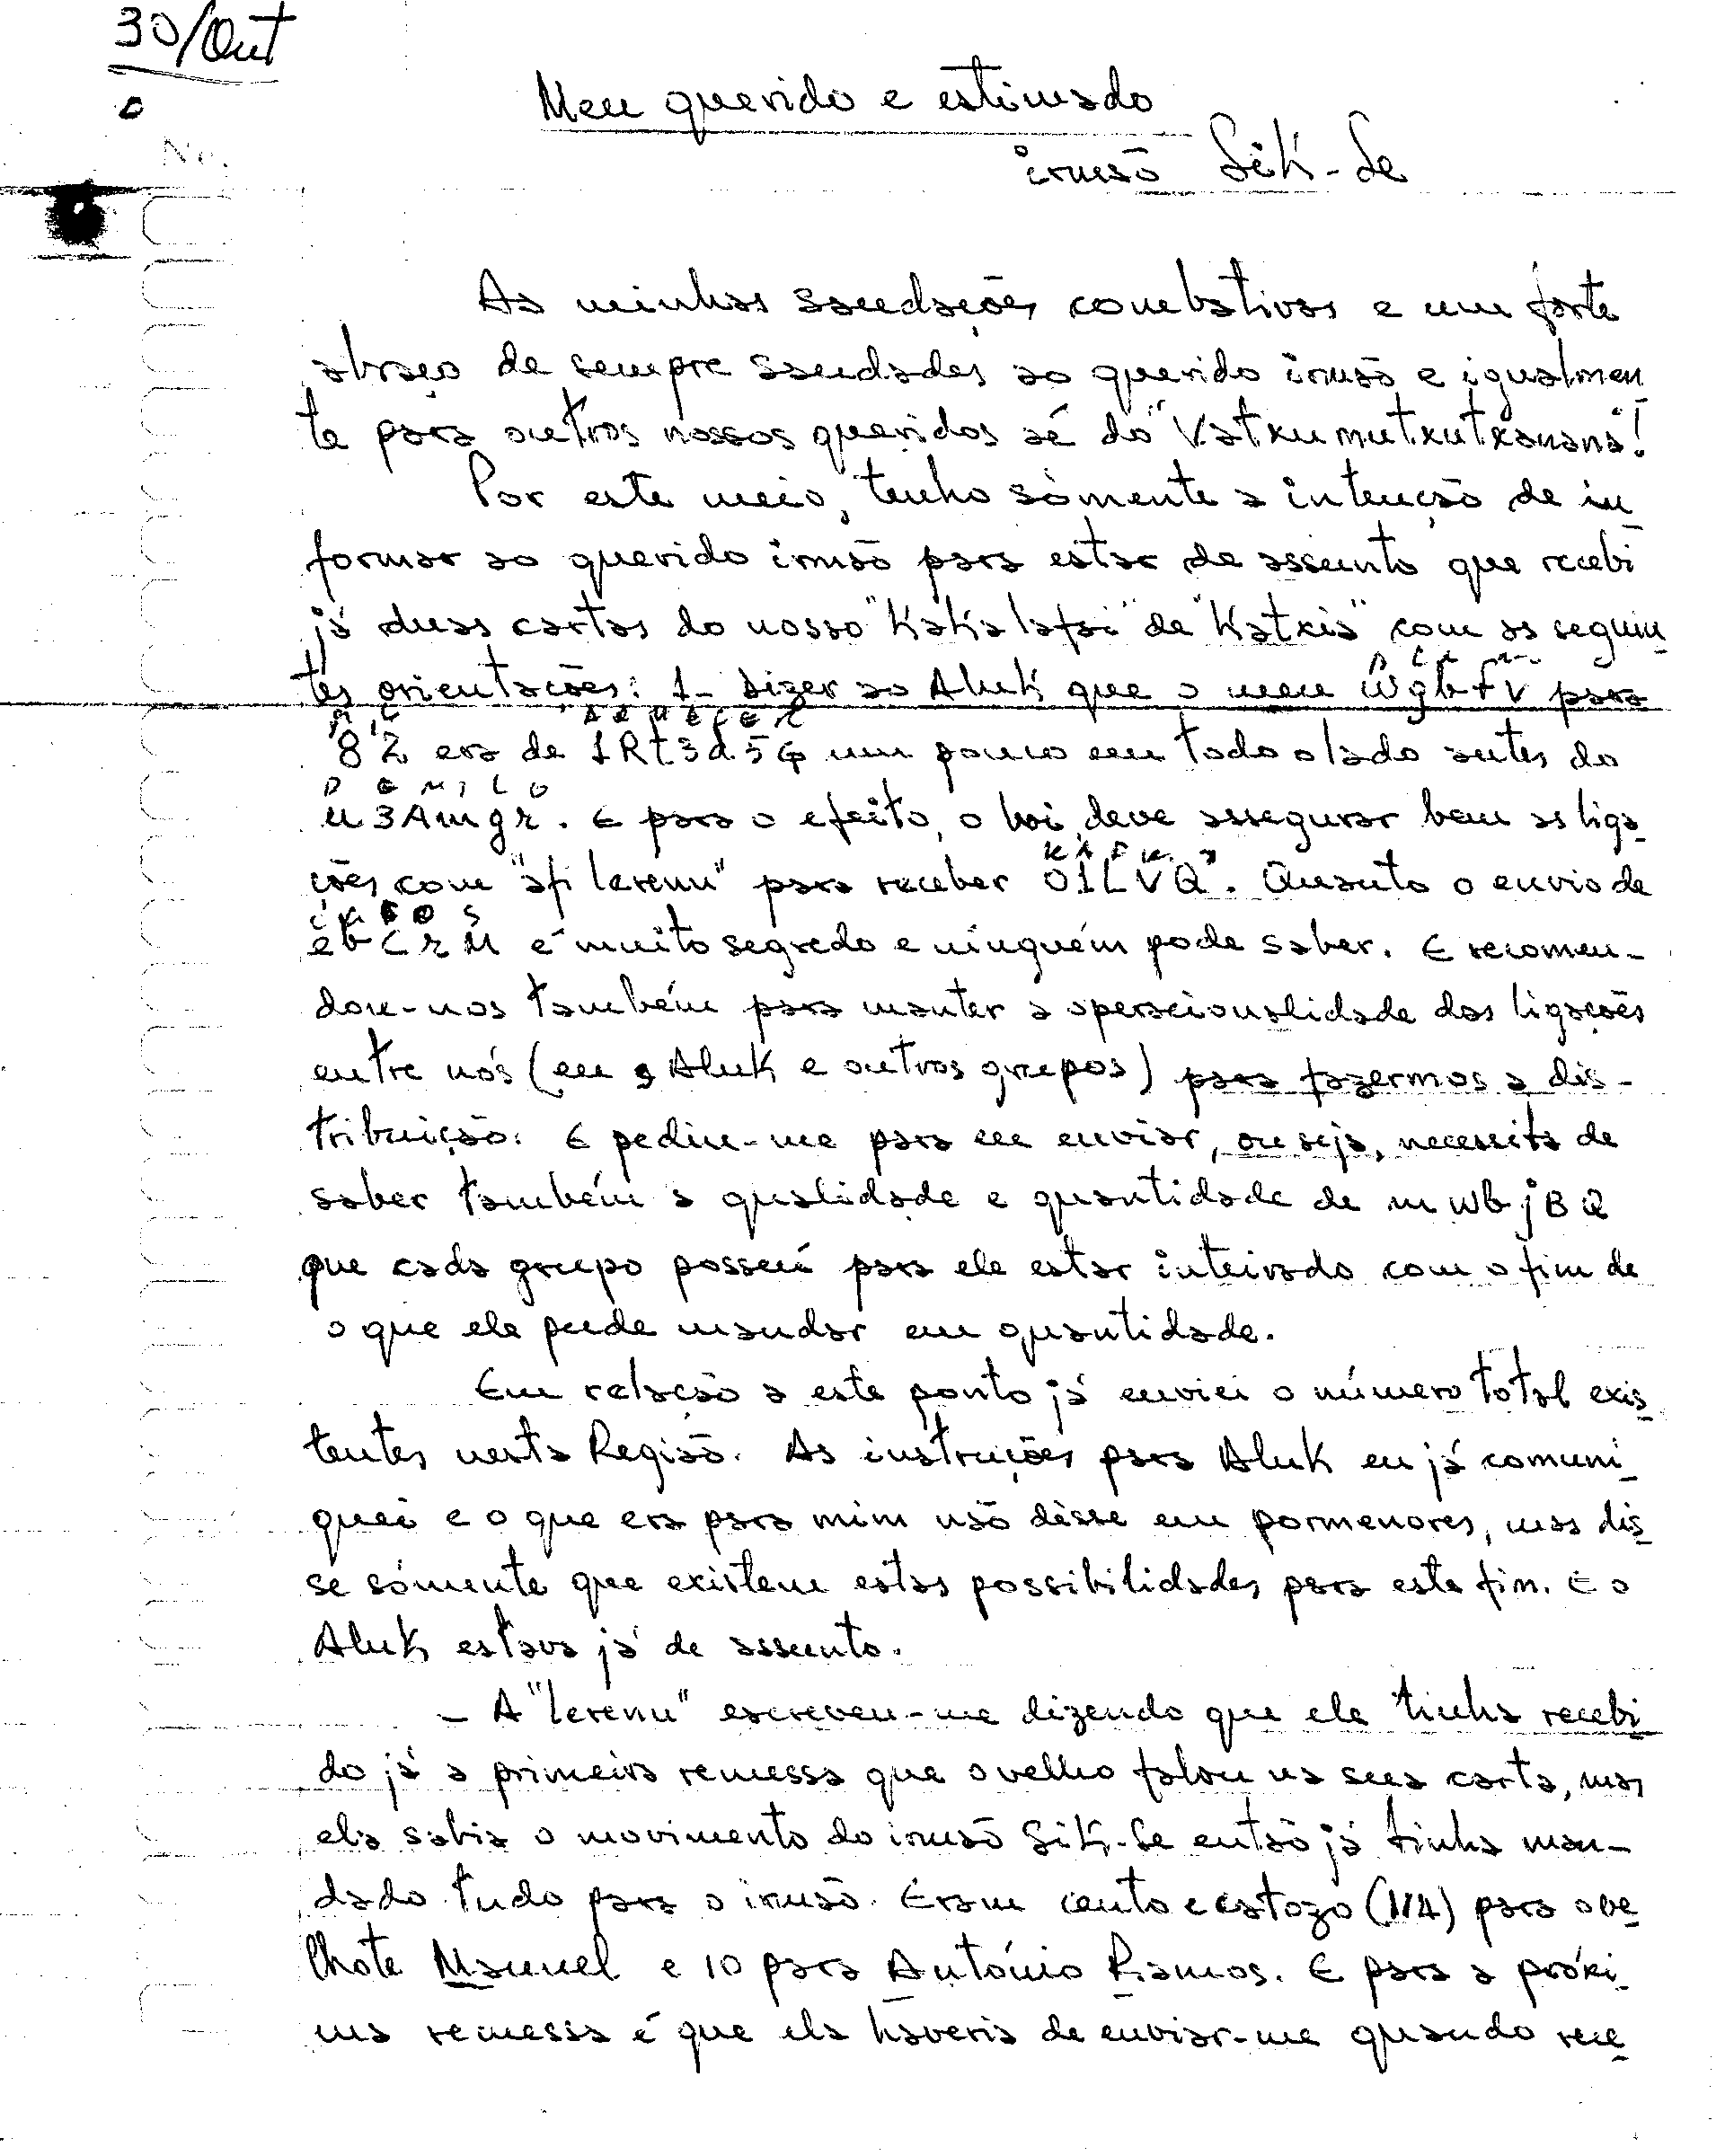 30/Out
No.
Meu querido e estimado
irmão Sik-Se
As minhas saudações combativas e um forte
abraço de sempre saudades ao querido irmão e igualmen
te para outros nossos queridos aé do "Vatxumutxutxanana"!
Por este meio, tenho sòmente a intenção de in
formar ao querido irmão para estar de assunto que recebi
já duas cartas do nosso "Kakalafai" de "Katxia" com as seguin
tes orientações: 1- Dizer ao Aluk que o meu Wgb+V para
8Z era de 1Rt3d5G um pouco em todo o lado antes do
D E M I L O
u3Amgr. E para o efeito, o hoi deve assegurar bem as liga-
ções com "afi lerenu" para receber 01LVQ". Quanto o envio de
ebCrM é muito segredo e ninguém pode saber. E recomen-
dou-nos também para manter a operacionalidade das ligações
entre nós (eu e Aluk e outros grupos) para fazermos a dis-
tribuição. E pediu-me para eu enviar, ou seja, necessita de
saber também a qualidade e quantidade de mWbjBQ
que cada grupo possuí para ele estar inteirado com o fim de
o que ele pude mandar em quantidade.
Em relação a este ponto já enviei o número total exis
tentes nesta Região. As instruções para Aluk eu já comuni
quei e o que era para mim não dísse em pormenores, mas dis
se sómente que existem estas possibilidades para este fim. E o
Aluk estava já de assunto.
- A "lerenu" escreveu-me dizendo que ela tinha recebi
do já a primeira remessa que o velho falou na sua carta, mas
ela sabia o movimento do irmão Sik-Se então já tinha man-
dado tudo para o irmão. Eram cento e catozo (114) para o ve
lhote Manuel e 10 para António Ramos. E para a próxi
ma remessa é que ela haveria de enviar-me quando rece